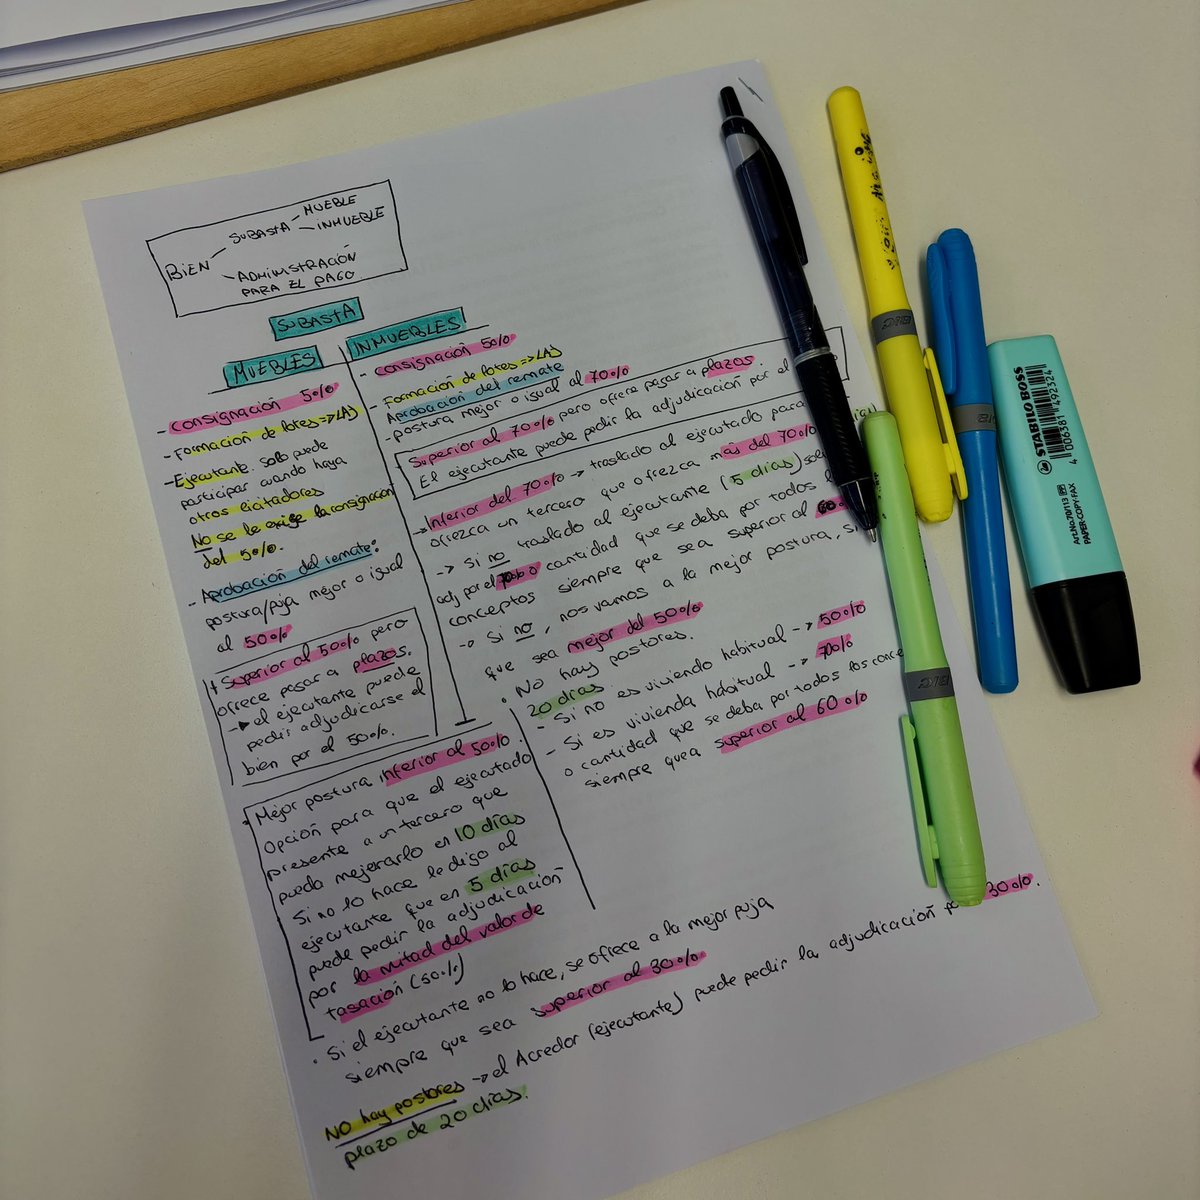 BIEN
SUBASTA
MUEBLE
INMUEBLE
ADMINISTRACIÓN
PARA EL PAGO
SUBASTA
MUEBLES
- consignación 5%
- Formación de lotes => LAJ
- Ejecutante. Solo puede
participar cuando haya
otros licitadores
No se le exige la consignación
del 5%.
- Aprobación del remate:
postura/puja mejor o igual
al 50%
Superior al 50% pero
ofrece pagar a plazos.
el ejecutante puede
pedir adjudicarse el
bien por el 50%.
Mejor postura inferior al 50%.
Opción para que el ejecutado
presente a un tercero que
pueda mejorarlo en 10 días
Si no lo hace le digo al
ejecutante que en 5 días
puede pedir la adjudicación
por la mitad del valor de
tasación (50%)
INMUEBLES
- consignación 5%
- Formación de lotes => LAJ
- Aprobación del remate
- postura mejor o igual al 70%
- Superior al 70% pero ofrece pagar a plazos.
El ejecutante puede pedir la adjudicación por el
- Inferior del 70% -> traslado al ejecutado para
ofrezca un tercero que ofrezca más del 70%
-> Si no traslado al ejecutante (5 días)
adj por el 70% o cantidad que se deba por todos
conceptos siempre que sea superior al 60%
-> Si no, nos vamos a la mejor postura,
que sea mejor del 50%
· No hay postores.
20 días
- Si no es vivienda habitual -> 50%
- Si es vivienda habitual -> 70%
o cantidad que se deba por todos los
siempre que a superior al 60%
· Si el ejecutante no lo hace, se ofrece a la mejor puja
siempre que sea superior al 30%
NO hay postores -> el Acredor (ejecutante) puede pedir la adjudicación 30%.
plazo de 20 días.
BIC
BIC
BIC
STABILO BOSS
Art.No.70/113
PAPER·COPY·FAX
4 006381 492324